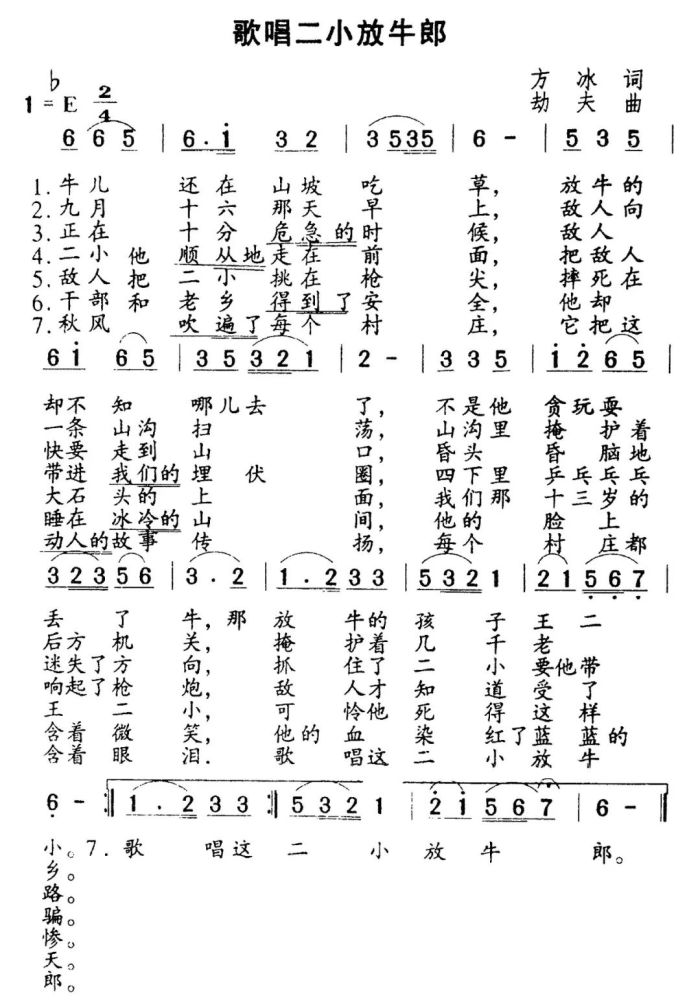 歌唱二小放牛郎
♭
1=E 2/4
方 冰 词
劫 夫 曲
6 6 5 | 6 . i 3 2 | 3 5 3 5 | 6 - | 5 3 5
1. 牛儿 还在 山坡 吃 草, 放牛的
2. 九月 十六 那天 早 上, 敌人向
3. 正在 十分 危急的时 候, 敌人
4. 二小他 顺从地走在 前 面, 把敌人
5. 敌人把 二小 挑在 枪 尖, 摔死在
6. 干部和 老乡 得到了安 全, 他却
7. 秋风 吹遍了每个 村 庄, 它把这
6 i 6 5 | 3 5 3 2 1 | 2 - | 3 3 5 | i 2 6 5 |
却不 知 哪儿去 了, 不是他 贪玩耍
一条 山沟 扫 荡, 山沟里 掩护着
快要 走到 山 口, 昏头 昏脑地
带进 我们的 埋伏 圈, 四下里 乒乓乒乓
大石 头的 上 面, 我们那 十三岁的
睡在 冰冷的 山 间, 他的 脸上
动人的故事 传 扬, 每个 村庄都
3 2 3 5 6 | 3 . 2 | 1 . 2 3 3 | 5 3 2 1 | 2 1 5 6 7 |
丢 了 牛, 那 放 牛的 孩 子 王 二
后方 机 关, 掩 护着 几 千 老
迷失了方 向, 抓 住了 二 小 要他带
响起了枪 炮, 敌 人才 知 道 受了
王 二 小, 可 怜他 死 得 这 样
含着 微 笑, 他的 血 染 红了蓝蓝的
含着 眼 泪. 歌 唱这 二 小 放 牛
6 - :‖ 1 . 2 3 3 :‖ 5 3 2 1 | 2 1 5 6 7 | 6 - ‖
小。 7. 歌 唱这 二 小 放 牛 郎。
乡。
路。
骗。
惨。
天。
郎。